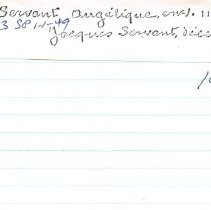 Servant, Angélique, env. 11
3 SP 1-1-49
Jacques Servant, déc